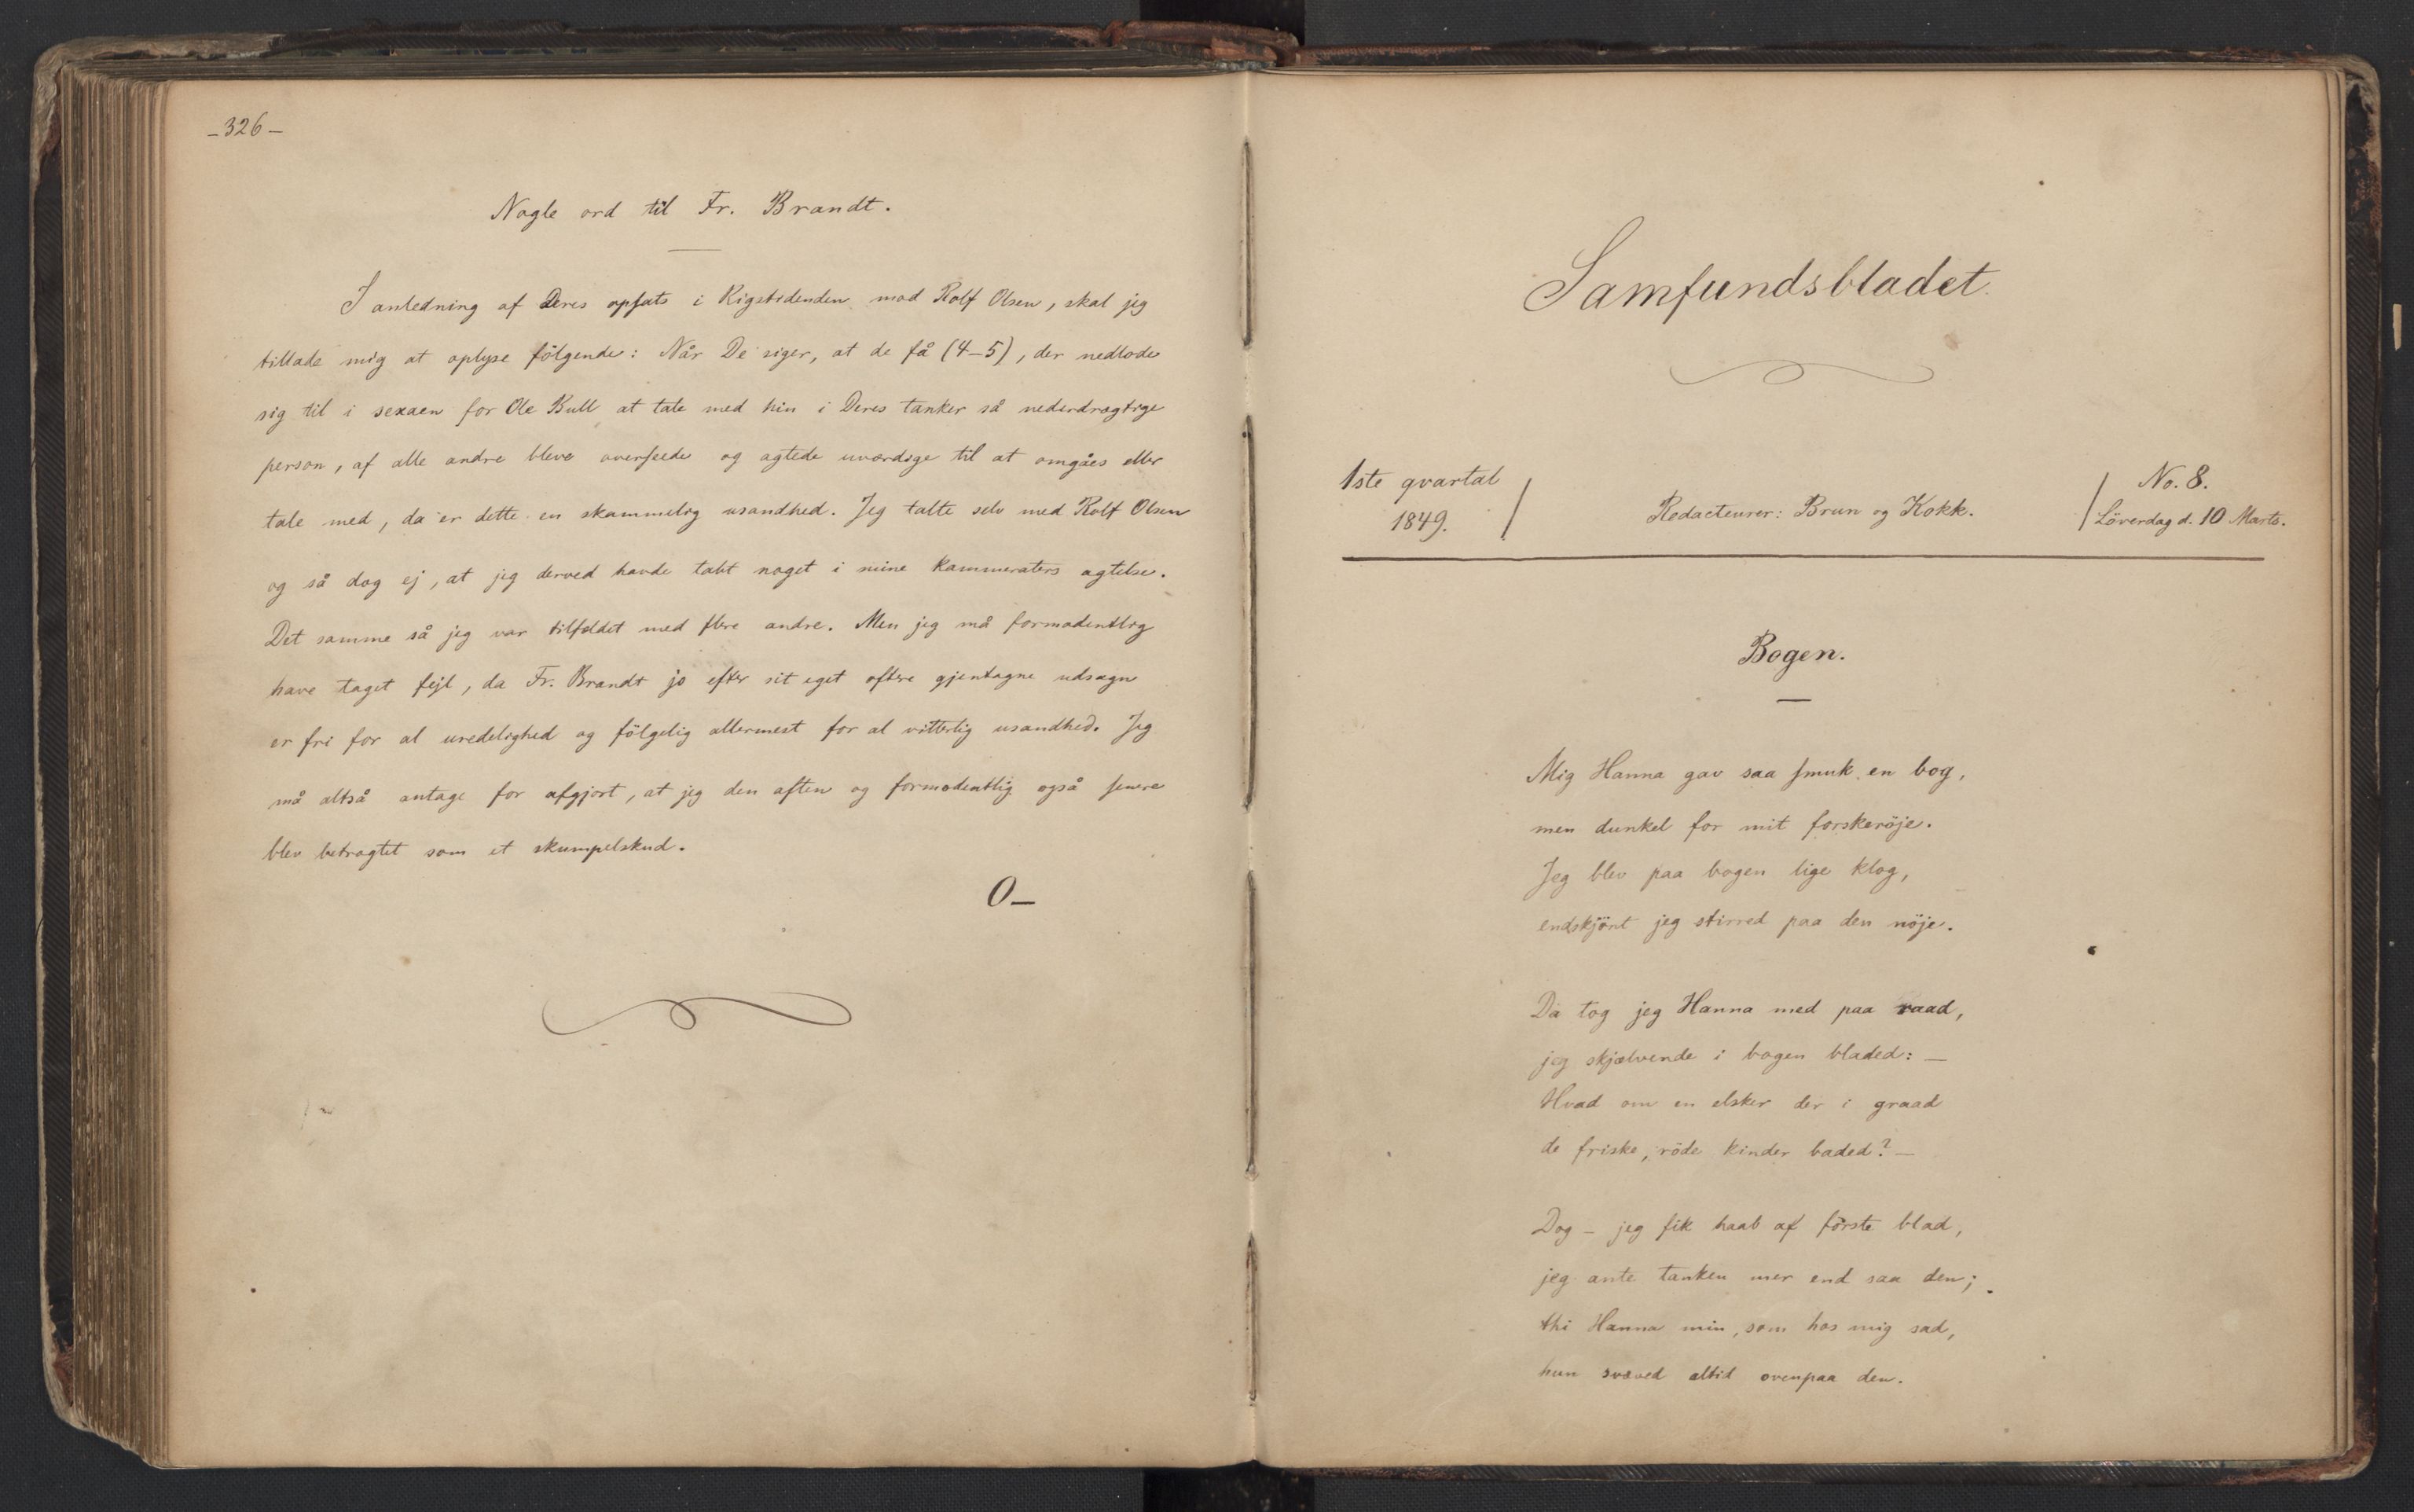 –326–
Nogle ord til Fr. Brandt.
I anledning af Deres opsats i Rigstidenden mod Rolf Olsen, skal jeg
tillade mig at oplyse fölgende: Når De siger, at de få (4–5), der nedlode
sig til i sexaen for Ole Bull at tale med hin i Deres tanker så nederdrægtige
person, af alle andre bleve overseede og agtede uværdige til at omgåes eller
tale med, da er dette en skammelig usandhed. Jeg talte selv med Rolf Olsen
og så dog ej, at jeg derved havde tabt noget i mine kammeraters agtelse.
Det samme så jeg var tilfældet med flere andre. Men jeg må formodentlig
have taget fejl, da Fr. Brandt jo efter sit eget oftere gjentagne udsagn
er fri for al uredelighed og fölgelig allermest for al vitterlig usandhed. Jeg
må altså antage for afgjort, at jeg den aften og formodentlig også senere
blev betragtet som et skumpelskud.
O–
Samfundsbladet.
1ste qvartal
1849.
Redacteurer: Brun og Kokk.
No. 8.
Löverdag d. 10 Marts.
Bogen.
Mig Hanna gav saa smuk en bog,
men dunkel for mit forskeröje.
Jeg blev paa bogen lige klog,
endskjönt jeg stirred paa den nöje.
Da tog jeg Hanna med paa raad,
jeg skjælvende i bogen bladed: –
Hvad om en elsker der i graad
de friske, röde kinder baded? –
Dog – jeg fik haab af förste blad,
jeg ante tanken mer end saa den;
thi Hanna min, som hos mig sad,
hun svæved altid ovenpaa den.